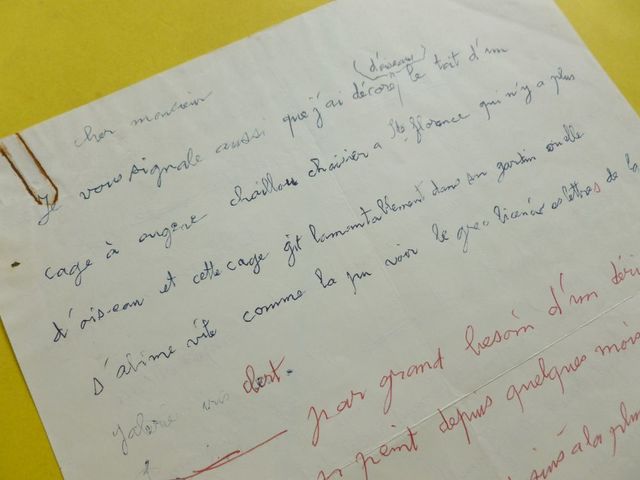 cher monsieur
(d'oiseaux)
Je vous signale aussi que j'ai décoré le toit d'un
cage à eugène chaillou chaisier a Ste florence qui n'y a plus
d'ois-eau et cette cage gît lamentablement dans son jardin où elle
s'abime vite comme la pu voir le grec licencié es lettres de la
galerie iris clert.
pas grand besoin d'un
peint depuis quelques mois
à la plu